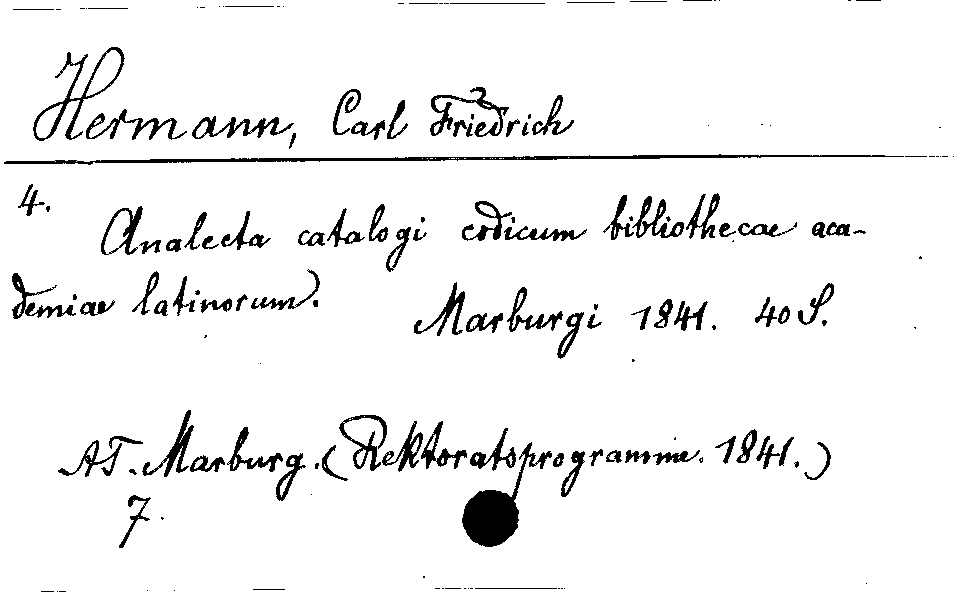 Hermann, Carl Friedrich
4.
Analecta catalogi codicum bibliothecae aca-
demiae latinorum.
Marburgi 1841. 40 S.
AT. Marburg. (Rektoratsprogramme. 1841.)
7.